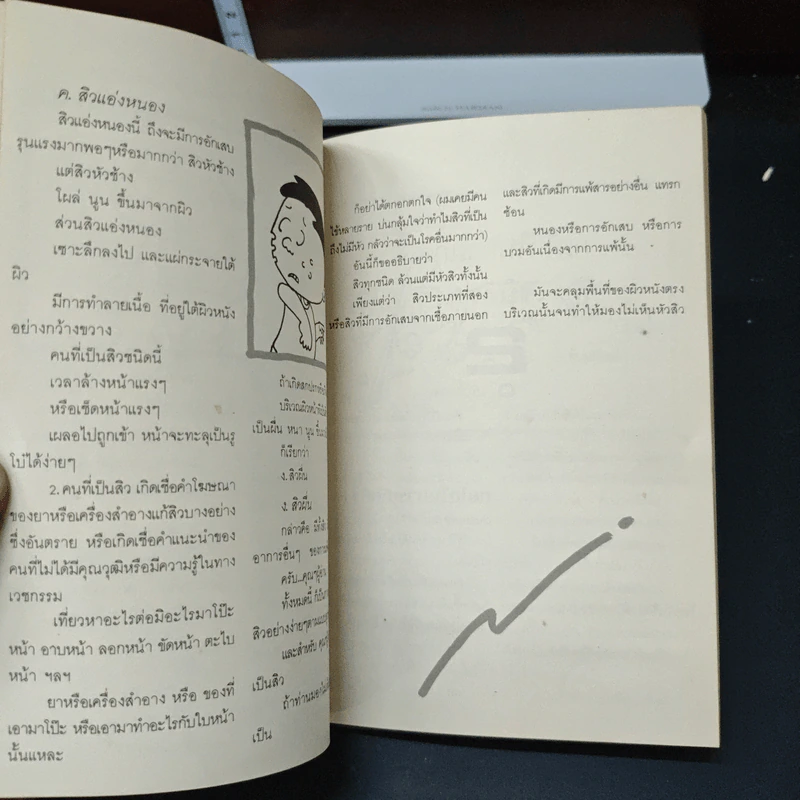 ค. สิวแอ่งหนอง
สิวแอ่งหนองนี้ ถึงจะมีการอักเสบ
รุนแรงมากพอๆหรือมากกว่า สิวหัวช้าง
แต่สิวหัวช้าง
โผล่ นูน ขึ้นมาจากผิว
ส่วนสิวแอ่งหนอง
เซาะลึกลงไป และแผ่กระจายใต้
ผิว
มีการทำลายเนื้อ ที่อยู่ใต้ผิวหนัง
อย่างกว้างขวาง
คนที่เป็นสิวชนิดนี้
เวลาล้างหน้าแรงๆ
หรือเช็ดหน้าแรงๆ
เผลอไปถูกเข้า หน้าจะทะลุเป็นรู
โบ๋ได้ง่ายๆ
2. คนที่เป็นสิว เกิดเชื่อคำโฆษณา
ของยาหรือเครื่องสำอางแก้สิวบางอย่าง
ซึ่งอันตราย หรือเกิดเชื่อคำแนะนำของ
คนที่ไม่ได้มีคุณวุฒิหรือมีความรู้ในทาง
เวชกรรม
เที่ยวหาอะไรต่อมิอะไรมาโป๊ะ
หน้า อาบหน้า ลอกหน้า ขัดหน้า ตะไบ
หน้า ฯลฯ
ยาหรือเครื่องสำอาง หรือ ของที่
เอามาโป๊ะ หรือเอามาทำอะไรกับใบหน้า
นั้นแหละ
ถ้าเกิด
บริเวณผิวหน้า
เป็นผื่น หนา นูน
ก็เรียกว่า
ง. สิวผื่น
ง. สิวผื่น
กล่าวคือ
อาการอื่นๆ ของ
ครับ...คุณผู้อ่าน
ทั้งหมดนี้
สิวอย่างง่ายๆ
และสำหรับ
เป็นสิว
ถ้าท่าน
เป็น
ก็อย่าได้ตกอกตกใจ (ผมเคยมีคน
ไข้หลายราย บ่นกลุ้มใจว่าทำไมสิวที่เป็น
ถึงไม่มีหัว กลัวว่าจะเป็นโรคอื่นมากกว่า)
อันนี้ก็ขออธิบายว่า
สิวทุกชนิด ล้วนแต่มีหัวสิวทั้งนั้น
เพียงแต่ว่า สิวประเภทที่สอง
หรือสิวที่มีการอักเสบจากเชื้อภายนอก
และสิวที่เกิดมีการแพ้สารอย่างอื่น แทรก
ซ้อน
หนองหรือการอักเสบ หรือการ
บวมอันเนื่องจากการแพ้นั้น
มันจะคลุมพื้นที่ของผิวหนังตรง
บริเวณนั้นจนทำให้มองไม่เห็นหัวสิว